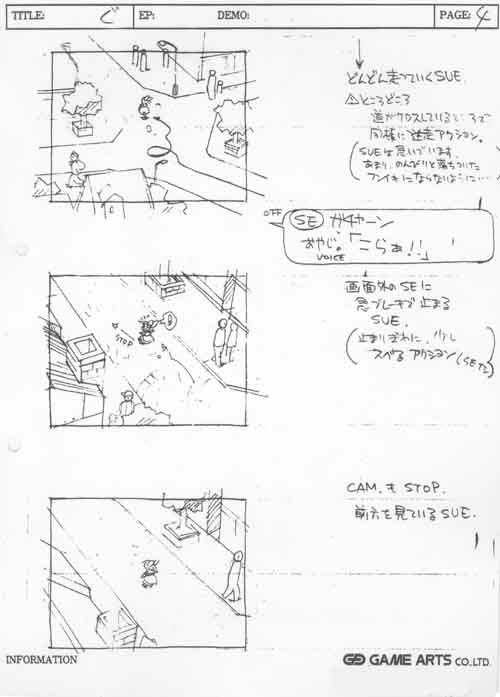 TITLE: ぐ EP: DEMO: PAGE: 4
どんどん走っていくSUE.
⚠ところどころ
道がクロスしているところで
同様に迷走アクション。
(SUEは急いでいます.
あまり、のんびりと落ちついた
フンイキにならないように…)
OFF
SE ガチャーン
おやじ。「こらぁ!!」
VOICE
画面外のSEに
急ブレーキで止まる
SUE.
(止まりぎわに、少し
スベるアクション(SEも))
STOP
CAM. も STOP.
前方を見ているSUE.
INFORMATION
GAME ARTS CO.,LTD.